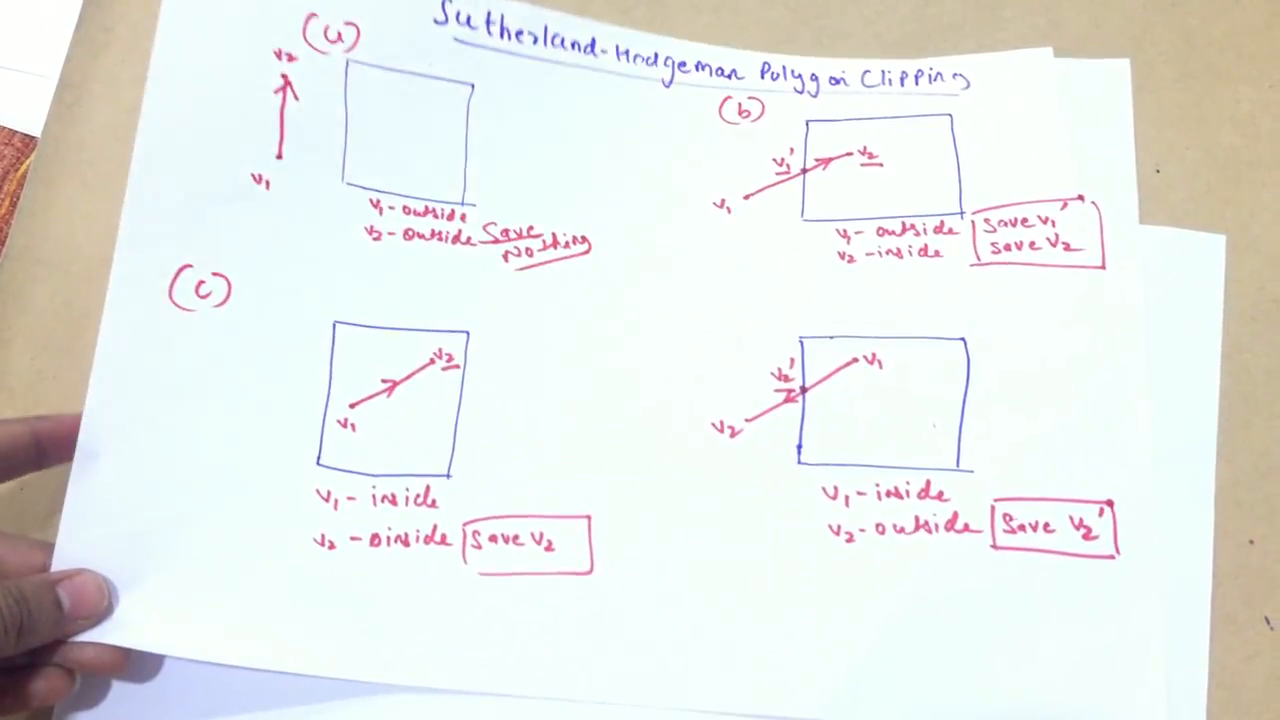 Sutherland-Hodgeman Polygon Clipping
(a)
v2
v1
v1 - outside
v2 - outside Save
Nothing
(b)
v1'
v2
v1
v1 - outside
v2 - inside
Save v1'
save v2
(c)
v2
v1
v1 - inside
v2 - oinside
Save v2
v1
v2'
v2
v1 - inside
v2 - outside
Save v2'